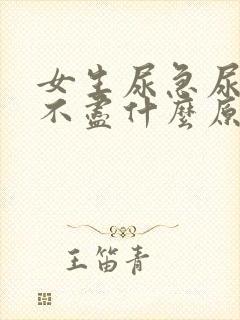 女生尿急尿
不盡什麼原
王笛青